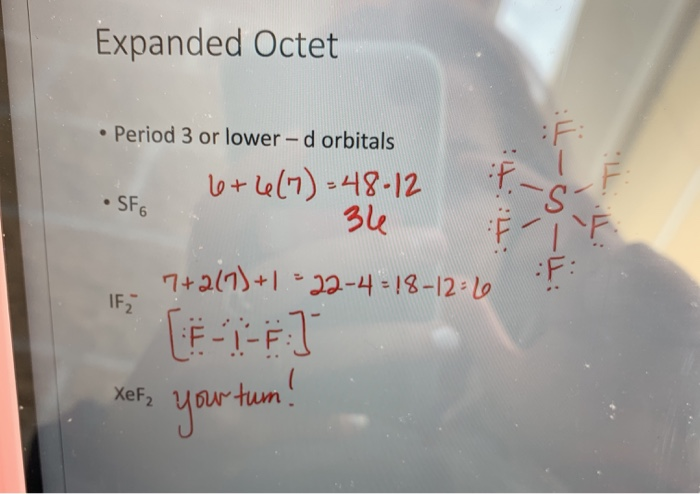 Expanded Octet
• Period 3 or lower – d orbitals
• SF₆
6+6(7) = 48-12
36
:F:
:F. - S - F
:F - | \ F
:F:
IF₂⁻
7+2(7)+1 = 22-4 = 18-12 = 6
[:F-I-F:]⁻
XeF₂
your turn!